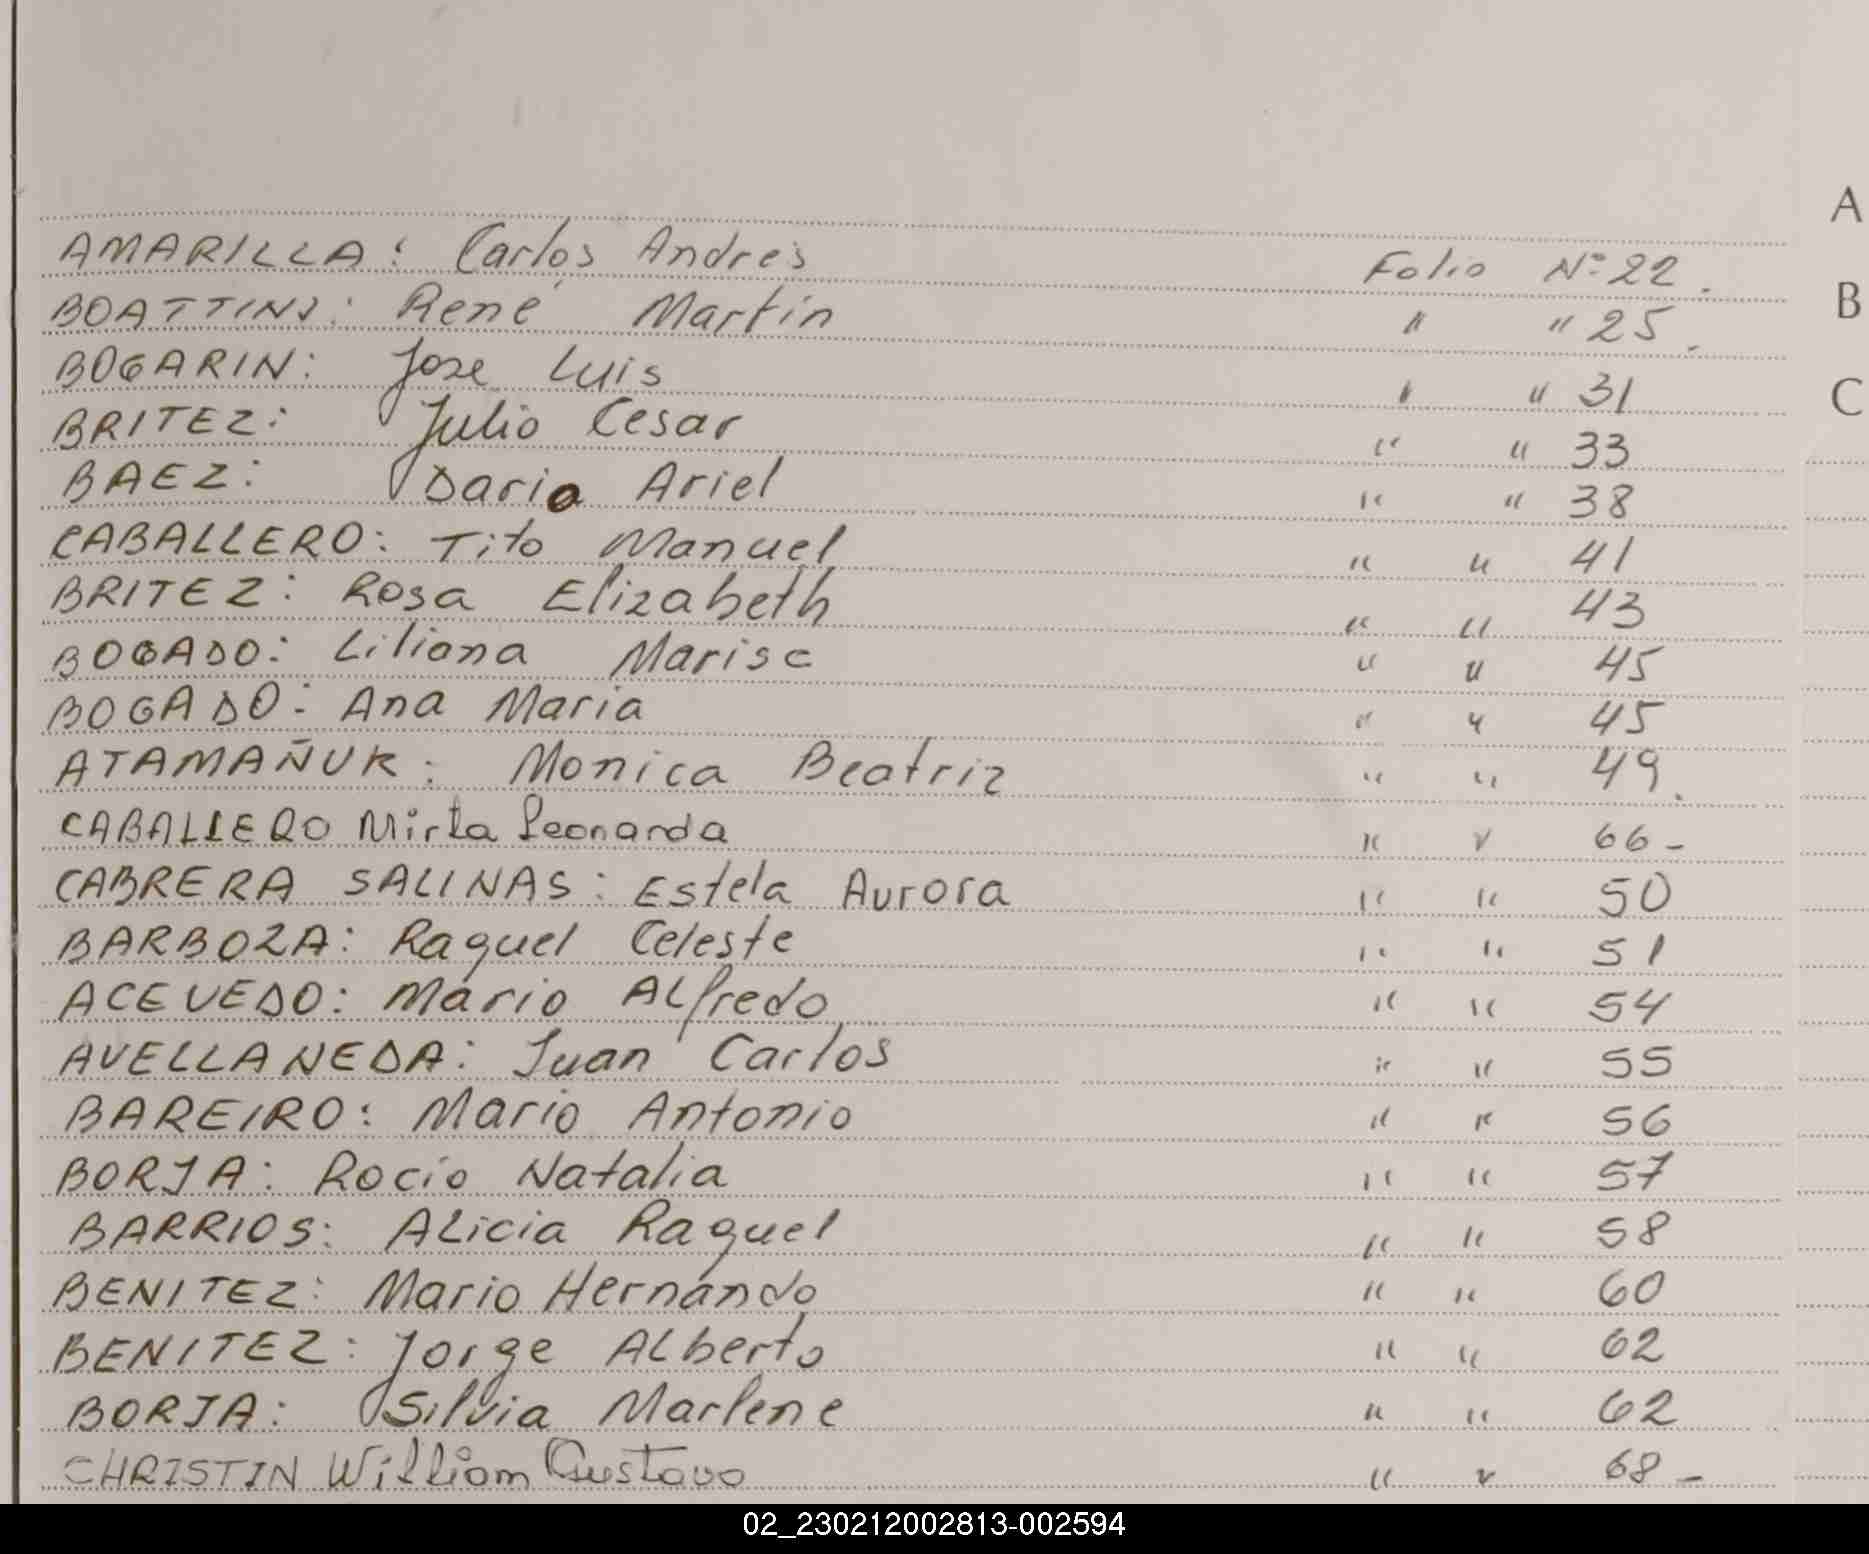 A
AMARILLA: Carlos Andrés Folio Nº 22.
BOATTINI: René Martín " " 25.
B
BOGARIN: Jose Luis " " 31
BRITEZ: Julio Cesar " " 33
C
BAEZ: Dario Ariel " " 38
CABALLERO: Tito Manuel " " 41
BRITEZ: Rosa Elizabeth " " 43
BOGADO: Liliana " " 45
BOGADO: Ana Maria " " 45
ATAMAÑUK: Monica Beatriz " " 49.
CABALLERO Mirta Leonarda " " 66-
CABRERA SALINAS: Estela Aurora " " 50
BARBOZA: Raquel Celeste " " 51
ACEVEDO: Mario ALfredo " " 54
AVELLANEDA: Juan Carlos " " 55
BAREIRO: Mario Antonio " " 56
BORJA: Rocío Natalia " " 57
BARRIOS: ALicia Raquel " " 58
BENITEZ: Mario Hernándo " " 60
BENITEZ: Jorge ALberto " " 62
BORJA: Silvia Marlene " " 62
CHRISTIN William Gustavo " " 68-
02_230212002813-002594